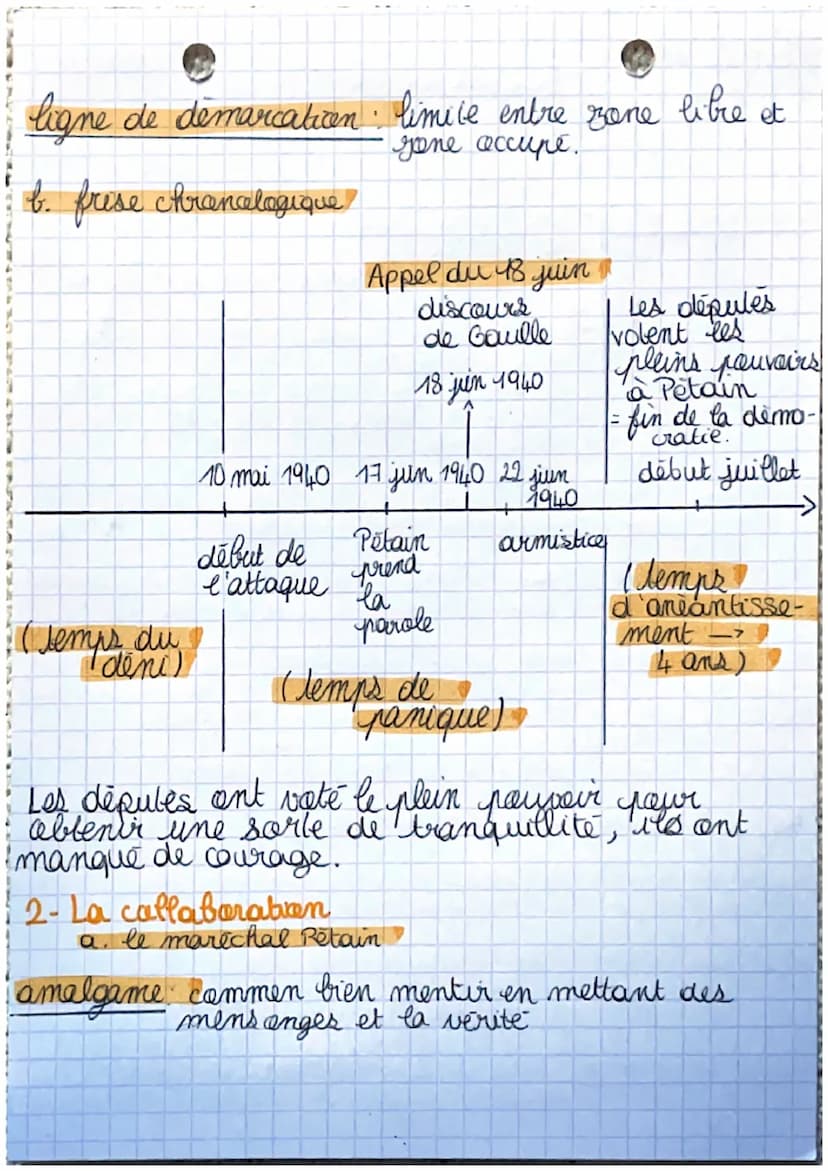 ligne de démarcation : limite entre zone libre et
zone occupé.
b. frise chronologique
Appel du 18 juin
discours
de Gaulle
18 juin 1940
Les députés
votent les
pleins pouvoirs
à Pétain
= fin de la démo-
cratie.
10 mai 1940 17 juin 1940 22 juin
1940
début juillet
début de
l'attaque
Pétain
prend
la
parole
armistice
(temps du
déni)
(temps de
panique)
(temps
d'anéantisse-
ment →
4 ans)
Les députés ont voté le plein pouvoir pour
obtenir une sorte de tranquillité, ils ont
manqué de courage.
2- La collaboration
a. le maréchal Pétain
amalgame : commen bien mentir en mettant des
mensonges et la vérité